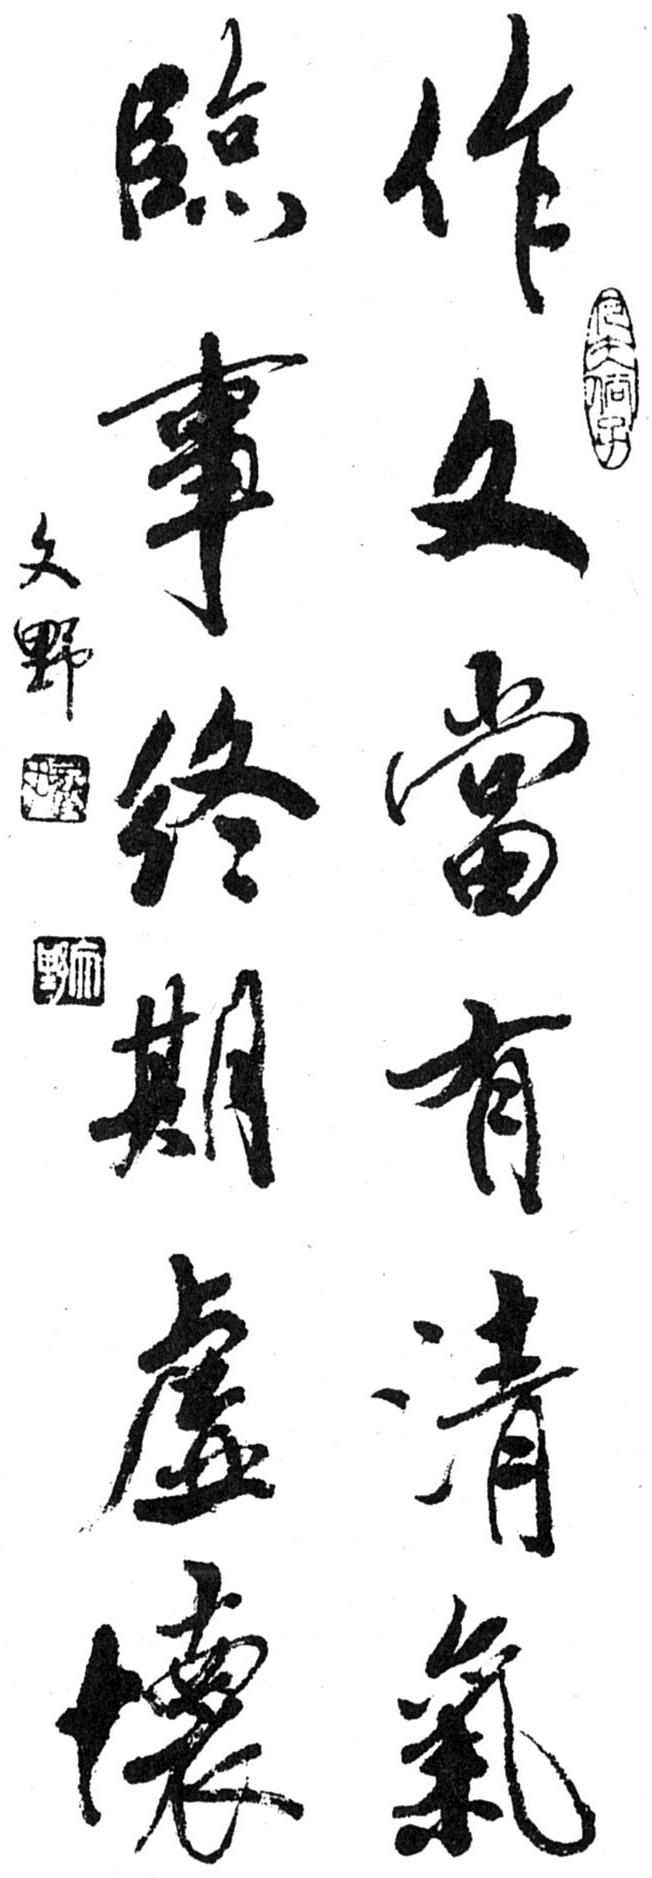 作文當有清氣
臨事終期虛懷
文野
文野